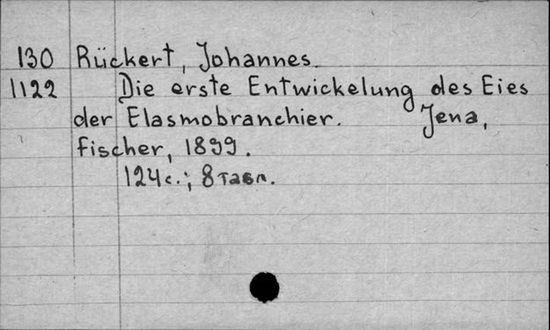 130 Rückert, Johannes.
1122 Die erste Entwickelung des Eies
der Elasmobranchier. Jena,
Fischer, 1899.
124с.; 8 табл.